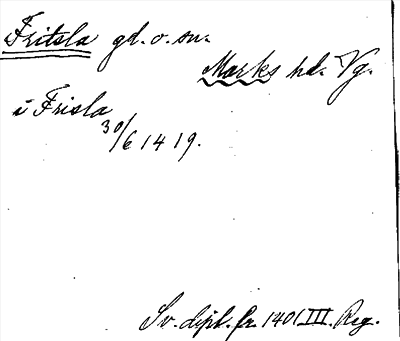 Fritsla gd. o. sn.
Marks hd. Vg.
i Frisla
30/6 1419.
Sv. dipl. fr. 1401 III. Reg.